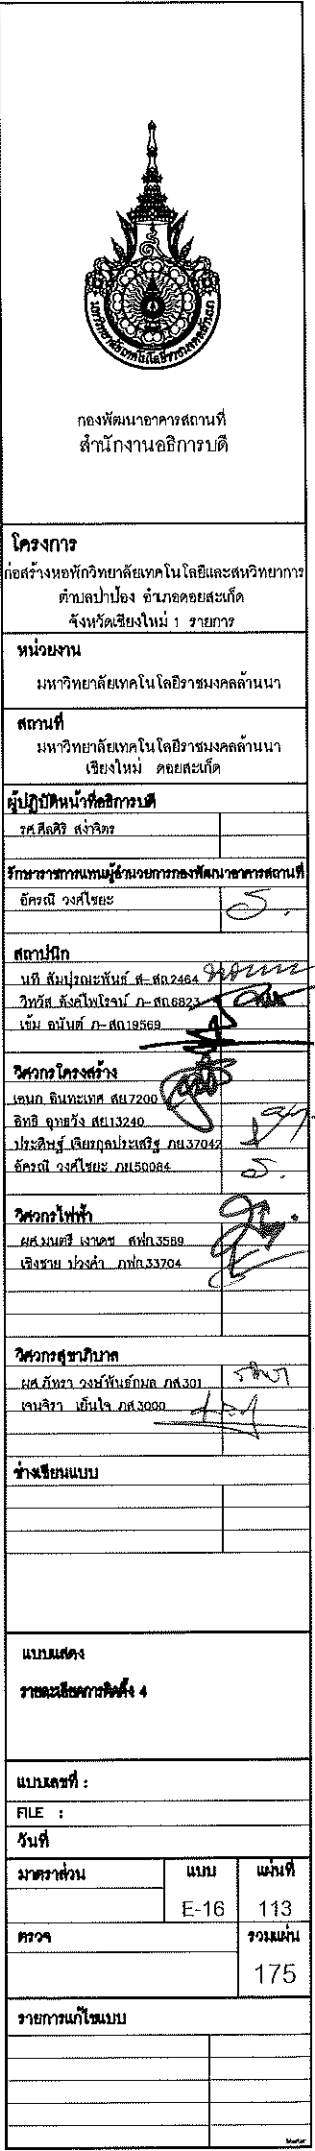 มหาวิทยาลัยเทคโนโลยีราชมงคลล้านนา
กองพัฒนาอาคารสถานที่
สำนักงานอธิการบดี
โครงการ
ก่อสร้างหอพักวิทยาลัยเทคโนโลยีและสหวิทยาการ
ตำบลป่าป้อง อำเภอดอยสะเก็ด
จังหวัดเชียงใหม่ 1 รายการ
หน่วยงาน
มหาวิทยาลัยเทคโนโลยีราชมงคลล้านนา
สถานที่
มหาวิทยาลัยเทคโนโลยีราชมงคลล้านนา
เชียงใหม่ ดอยสะเก็ด
ผู้ปฏิบัติหน้าที่อธิการบดี
รศ.ศีลศิริ สง่าจิตร
รักษาราชการแทนผู้อำนวยการกองพัฒนาอาคารสถานที่
อัครณี วงศ์ไชยะ
สถาปนิก
นที สัมปุรณะพันธ์ ส-สถ.2464
วิทวัส ตังค์ไพโรจน์ ภ-สถ.6823
เข้ม อนันต์ ภ-สถ19569
วิศวกรโครงสร้าง
เอนก อินทะเทศ สย7200
อิทธิ อุทธวัง สย13240
ประดิษฐ์ เจียรกุลประเสริฐ ภย37042
อัครณี วงศ์ไชยะ ภย50084
วิศวกรไฟฟ้า
ผศ.มนตรี เงาเดช สฟก.3589
เชิงชาย ปวงคำ ภฟก.33704
วิศวกรสุขาภิบาล
ผศ.ภัทรา วงษ์พันธ์กมล ภส.301
เจนจิรา เย็นใจ ภส.3000
ช่างเขียนแบบ
แบบแสดง
รายละเอียดการติดตั้ง 4
แบบเลขที่ :
FILE :
วันที่
มาตราส่วน แบบ แผ่นที่
E-16 113
ตรวจ รวมแผ่น
175
รายการแก้ไขแบบ